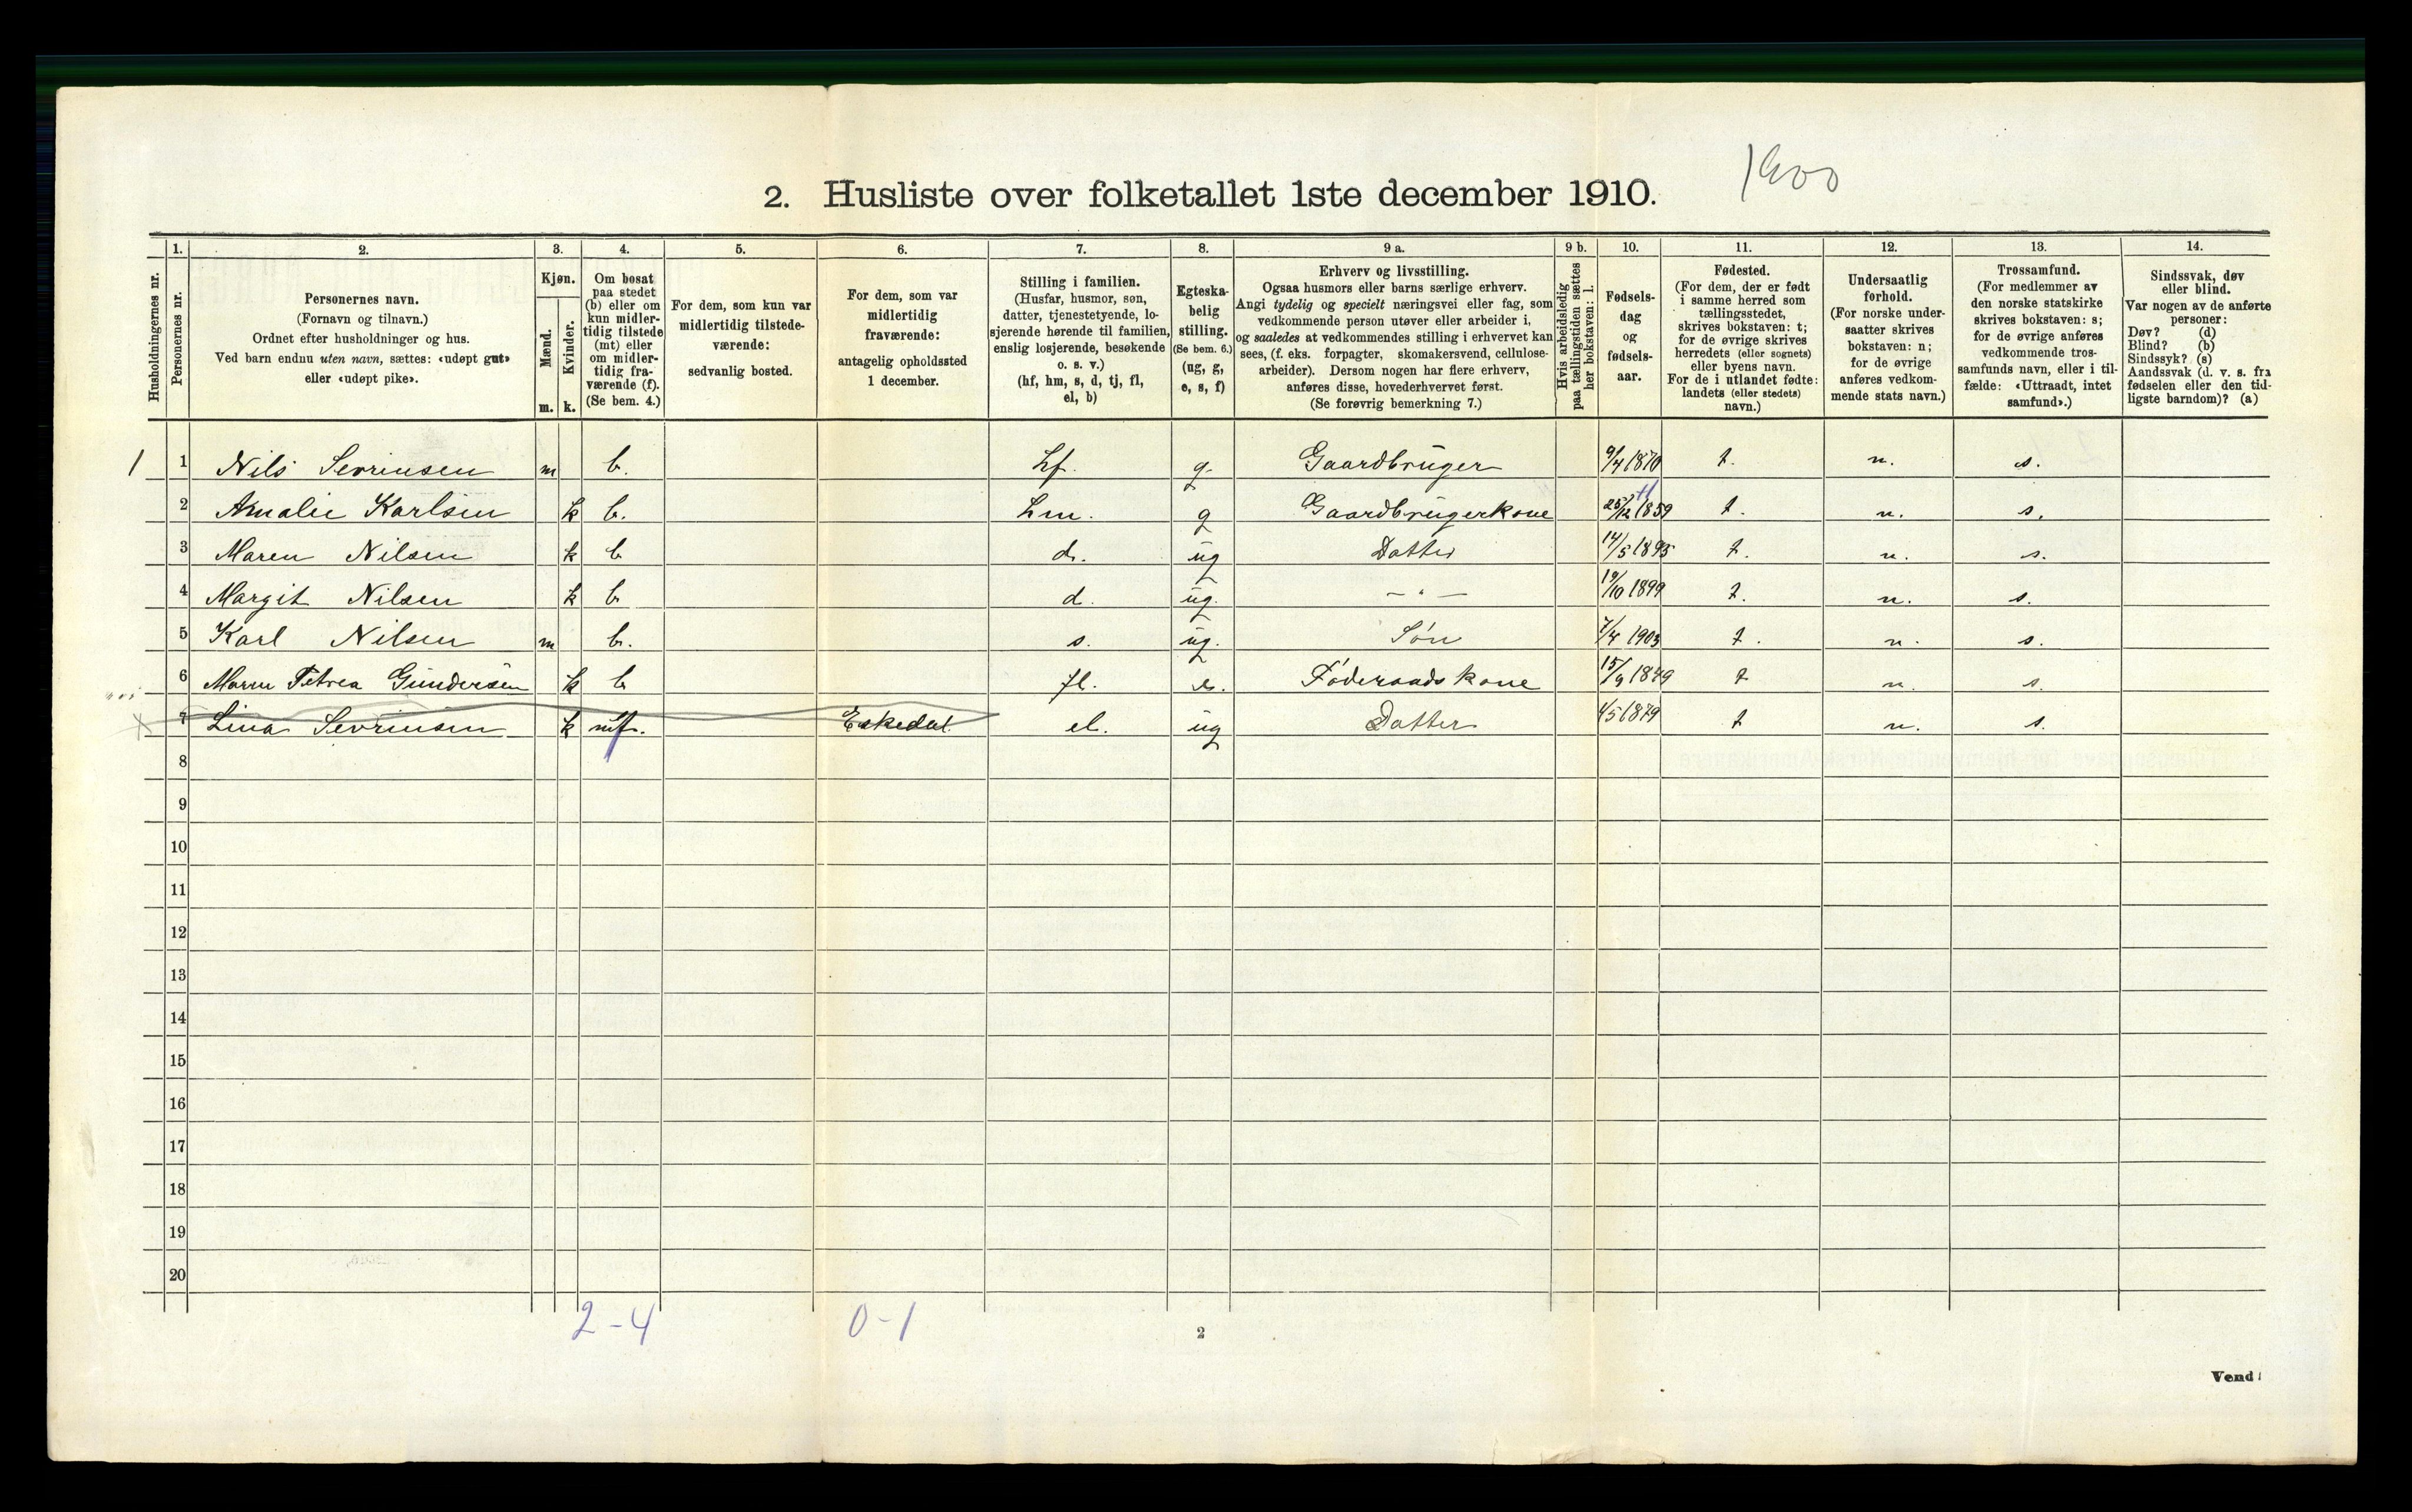 1900
2. Husliste over folketallet 1ste december 1910.
Husholdningernes nr.
1.
Personernes nr.
2.
Personernes navn.
(Fornavn og tilnavn.)
Ordnet efter husholdninger og hus.
Ved barn endnu uten navn, sættes: «udøpt gut»
eller «udøpt pike».
3.
Kjøn.
Mænd.
m.
Kvinder.
k.
4.
Om bosat
paa stedet
(b) eller om
kun midler-
tidig tilstede
(mt) eller
om midler-
tidig fra-
værende (f).
(Se bem. 4.)
5.
For dem, som kun var
midlertidig tilstede-
værende:
sedvanlig bosted.
6.
For dem, som var
midlertidig
fraværende:
antagelig opholdssted
1 december.
7.
Stilling i familien.
(Husfar, husmor, søn,
datter, tjenestetyende, lo-
sjerende hørende til familien,
enslig losjerende, besøkende
o. s. v.)
(hf, hm, s, d, tj, fl,
el, b)
8.
Egteska-
belig
stilling.
(Se bem. 6.)
(ug, g,
e, s, f)
9 a.
Erhverv og livsstilling.
Ogsaa husmors eller barns særlige erhverv.
Angi tydelig og specielt næringsvei eller fag, som
vedkommende person utøver eller arbeider i,
og saaledes at vedkommendes stilling i erhvervet kan
sees, (f. eks. forpagter, skomakersvend, cellulose-
arbeider). Dersom nogen har flere erhverv,
anføres disse, hovederhvervet først.
(Se forøvrig bemerkning 7.)
9 b.
Hvis arbeidsledig
paa tællingstiden sættes
her bokstaven: l.
10.
Fødsels-
dag
og
fødsels-
aar.
11.
Fødested.
(For dem, der er født
i samme herred som
tællingsstedet,
skrives bokstaven: t;
for de øvrige skrives
herredets (eller sognets)
eller byens navn.
For de i utlandet fødte:
landets (eller stedets)
navn.)
12.
Undersaatlig
forhold.
(For norske under-
saatter skrives
bokstaven: n;
for de øvrige
anføres vedkom-
mende stats navn.)
13.
Trossamfund.
(For medlemmer av
den norske statskirke
skrives bokstaven: s;
for de øvrige anføres
vedkommende tros-
samfunds navn, eller i til-
fælde: «Uttraadt, intet
samfund».)
14.
Sindssvak, døv
eller blind.
Var nogen av de anførte
personer:
Døv? (d)
Blind? (b)
Sindssyk? (s)
Aandssvak (d. v. s. fra
fødselen eller den tid-
ligste barndom)? (a)
1 1 Nils Sevrinsen m b. hf. g. Gaardbruger 9/4 1870 t. n. s.
2 Amalie Karlsen k b. hm. g Gaardbrugerkone 25/12 1859 t. n. s.
3 Maren Nilsen k b d. ug Datter 14/5 1895 t. n. s.
4 Margit Nilsen k b d. ug. — " — 19/10 1899 t. n. s.
5 Karl Nilsen m b. s. ug. Søn 7/4 1903 t. n. s.
6 Maren Petrea Gundersen k b fl. e. Føderaadskone 15/9 1849 t n. s.
x 7 Lina Sevrinsen k mf. Eskedal. el. ug Datter 4/5 1879 t n. s.
8
9
10
11
12
13
14
15
16
17
18
19
20
2-4 0-1
2
Vend!